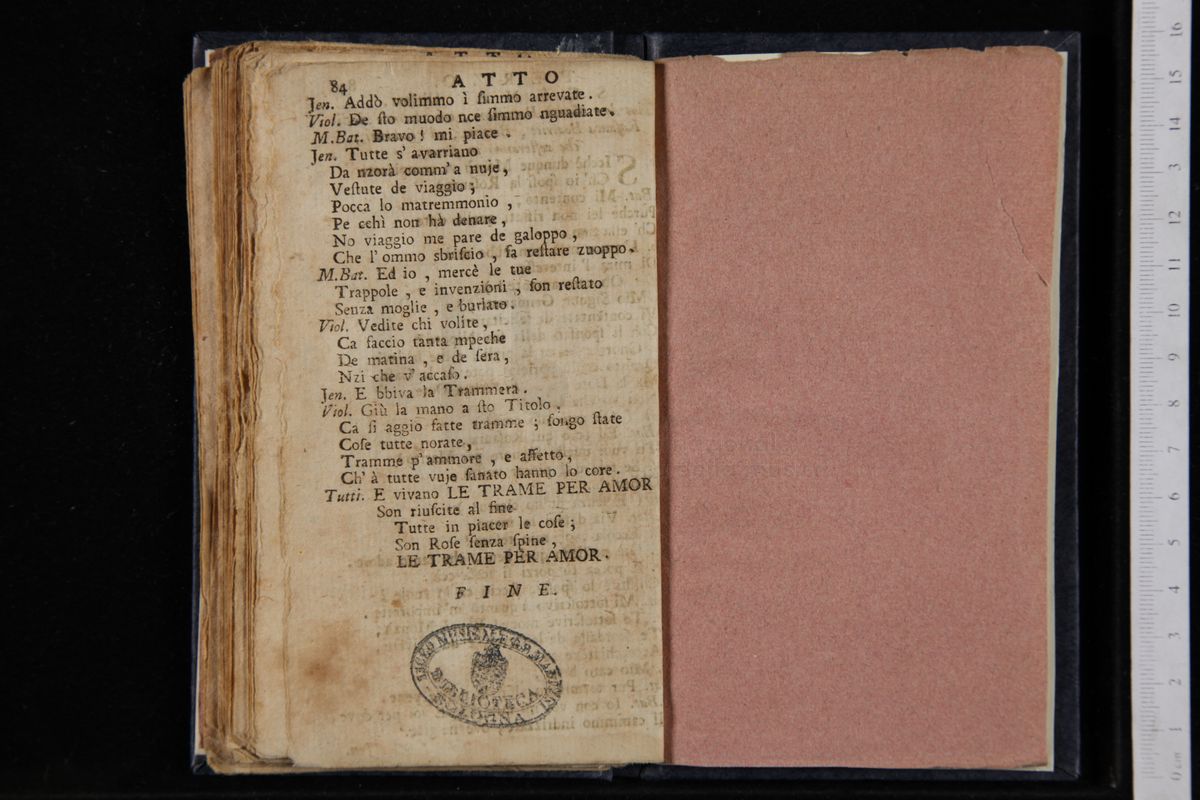 84 ATTO
Jen. Addò volimmo ì simmo arrevate.
Viol. De sto muodo nce simmo nguadiate.
M.Bat. Bravo! mi piace.
Jen. Tutte s'avarriano
Da nzorà comm'a nuje,
Vestute de viaggio;
Pocca lo matremmonio,
Pe cchì non hà denare,
No viaggio me pare de galoppo,
Che l'ommo sbriscio, fa restare zuoppo.
M.Bat. Ed io, mercè le tue
Trappole, e invenzioni, son restato
Senza moglie, e burlato.
Viol. Vedite chi volite,
Ca faccio tanta mpeche
De matina, e de sera,
Nzi che v'accaso.
Jen. E bbiva la Trammera.
Viol. Giù la mano a sto Titolo.
Ca si aggio fatte tramme; songo state
Cose tutte norate,
Tramme p'ammore, e affetto,
Ch'à tutte vuje sanato hanno lo core.
Tutti. E vivano LE TRAME PER AMOR
Son riuscite al fine
Tutte in piacer le cose;
Son Rose senza spine,
LE TRAME PER AMOR.
FINE.
LICEO MUSICALE G.B. MARTINI
BIBLIOTECA
BOLOGNA
16
15
14
13
12
11
10
9
8
7
6
5
4
3
2
1
0 cm